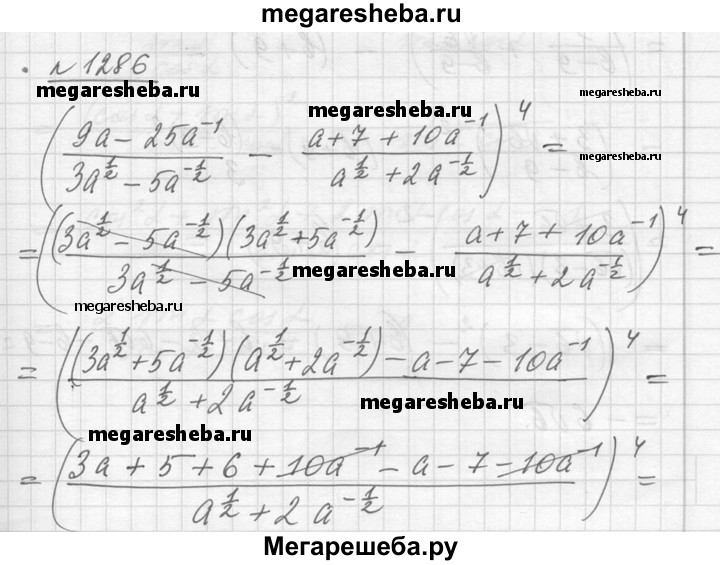 megaresheba.ru
№ 1286
megaresheba.ru megaresheba.ru megaresheba.ru
((9a - 25a^-1)/(3a^1/2 - 5a^-1/2) - (a + 7 + 10a^-1)/(a^1/2 + 2a^-1/2))^4 =
megaresheba.ru
= (((3a^1/2 - 5a^-1/2)(3a^1/2 + 5a^-1/2))/(3a^1/2 - 5a^-1/2) - (a + 7 + 10a^-1)/(a^1/2 + 2a^-1/2))^4 =
megaresheba.ru
megaresheba.ru megaresheba.ru
= (((3a^1/2 + 5a^-1/2)(a^1/2 + 2a^-1/2) - a - 7 - 10a^-1)/(a^1/2 + 2a^-1/2))^4 =
megaresheba.ru
megaresheba.ru
= ((3a + 5 + 6 + 10a^-1 - a - 7 - 10a^-1)/(a^1/2 + 2a^-1/2))^4 =
Мегарешеба.ру